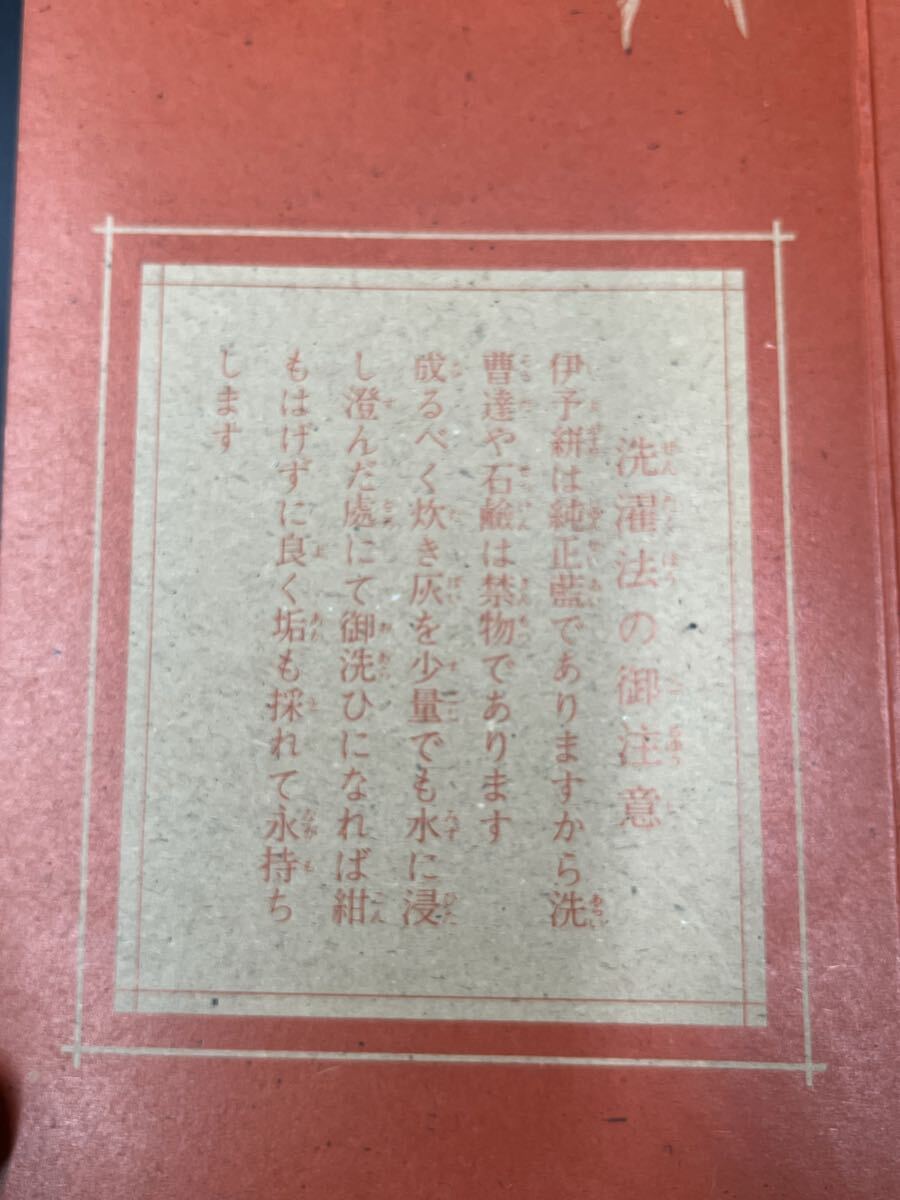 洗濯法の御注意
伊予絣は純正藍でありますから洗
曹達や石鹼は禁物であります
成るべく炊き灰を少量でも水に浸
し澄んだ處にて御洗ひになれば紺
もはげずに良く垢も採れて永持ち
します